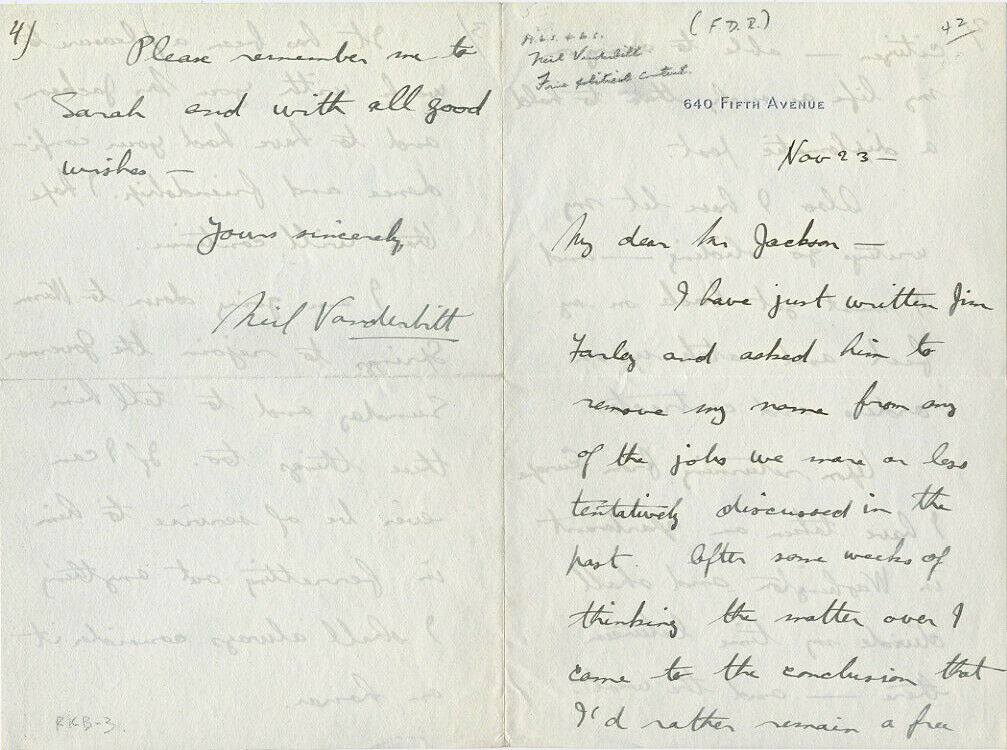 4)
Please remember me to
Sarah and with all good
wishes —
Yours sincerely,
Neil Vanderbilt
RKB-3.
(F.D.R.)
42
A.L.S. 4 p.s.
Neil Vanderbilt
Fine political content.
640 FIFTH AVENUE
Nov 23 —
My dear Mr Jackson —
I have just written Jim
Farley and asked him to
remove my name from any
of the jobs we more or less
tentatively discussed in the
past. After some weeks of
thinking the matter over I
came to the conclusion that
I'd rather remain a free